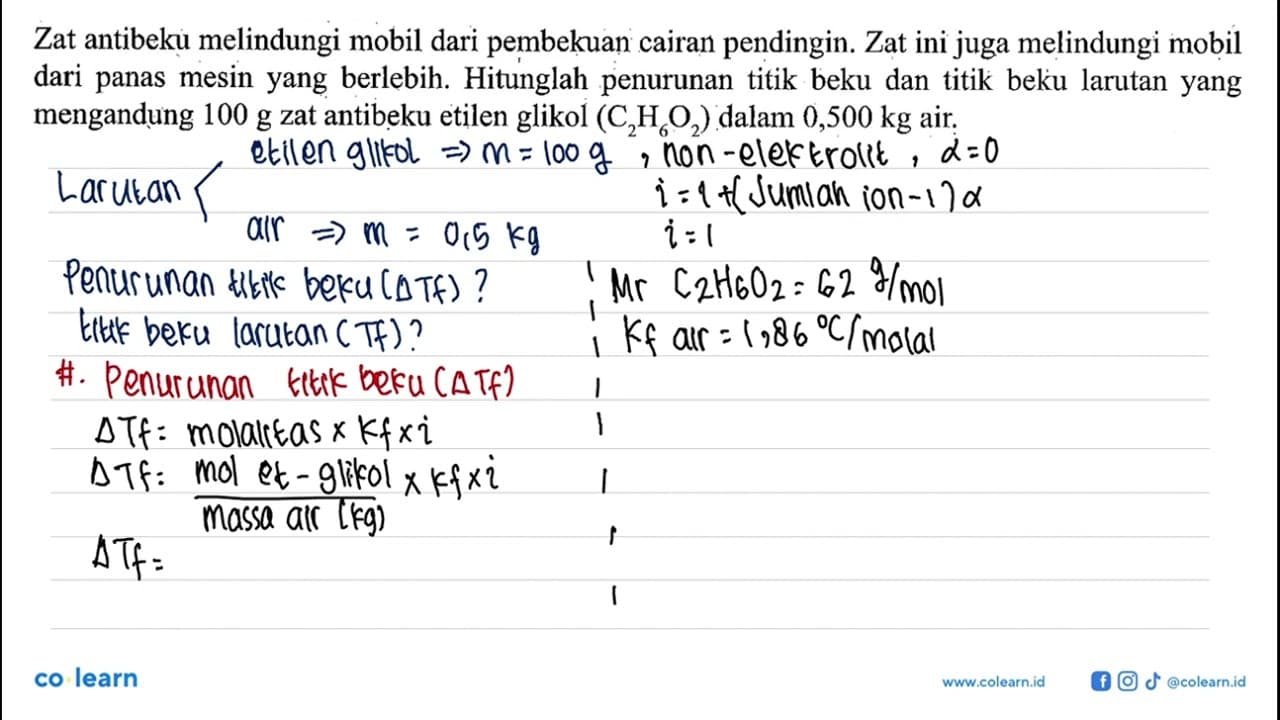 Zat antibeku melindungi mobil dari pembekuan cairan pendingin. Zat ini juga melindungi mobil
dari panas mesin yang berlebih. Hitunglah penurunan titik beku dan titik beku larutan yang
mengandung 100 g zat antibeku etilen glikol (C₂H₆O₂) dalam 0,500 kg air.
etilen glikol ⇒ m = 100 g , non-elektrolit , α=0
Larutan
i = 1 + (Jumlah ion-1)α
air ⇒ m = 0,5 kg
i = 1
Penurunan titik beku (ΔTf) ?
Mr C2H6O2 = 62 g/mol
titik beku larutan (Tf) ?
Kf air = 1,86 °C/molal
#. Penurunan titik beku (ΔTf)
ΔTf = molalitas x Kf x i
ΔTf = mol et-glikol x Kf x i
massa air (kg)
ΔTf =
co learn
www.colearn.id
@colearn.id